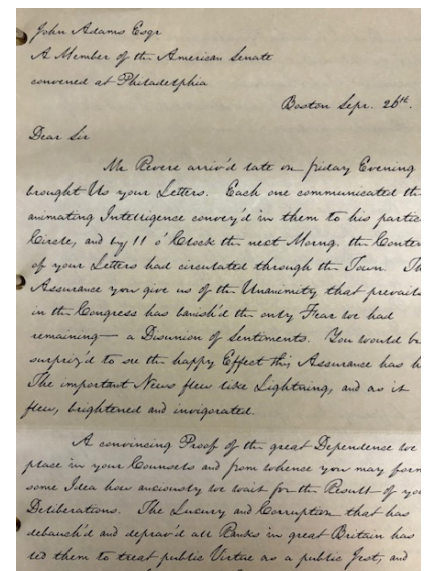 John Adams Esqr
A Member of the American Senate
convened at Philadelphia
Boston Sepr. 26th.
Dear Sir
Mr Revere arriv'd late on friday Evening
brought Us your Letters. Each one communicated th
animating Intelligence convey'd in them to his partic
Circle, and by 11 o'Clock the next Morng. the Conten
of your Letters had circulated through the Town. Th
Assurance you give us of the Unanimity that prevails
in the Congress has banish'd the only Fear we had
remaining— a Disunion of Sentiments. You would be
surpriz'd to see the happy Effect this Assurance has h
The important News flew like Lightning, and as it
flew, brightened and invigorated.
A convincing Proof of the great Dependence we
place in your Counsels and from whence you may form
some Idea how anxiously we wait for the Result of you
Deliberations. The Luxury and Corruption that has
debauch'd and deprav'd all Ranks in great Britain has
led them to treat public Virtue as a public Jest, and